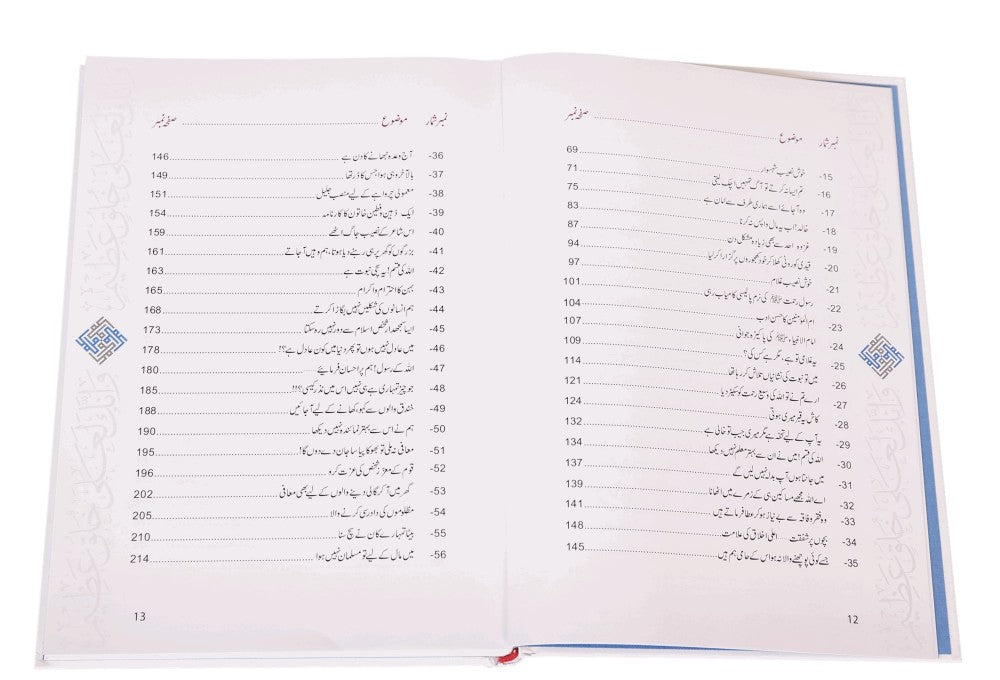 نمبر شمار موضوع ........ صفحہ نمبر
15- خوش نصیب شہسوار ........ 69
16- تم ایسا نہ کرتے تو آگ تمھیں اچک لیتی ........ 71
17- وہ آجائے اسے ہماری طرف سے امان ہے ........ 75
18- خالد! اب یہ مال واپس نہ کرنا ........ 83
19- غزوہ احد سے بھی زیادہ مشکل دن ........ 87
20- قیدی کو روٹی کھلا کر خود کھجوروں پر گزارا کر لیا ........ 94
21- خوش نصیب غلام ........ 97
22- رسول رحمت ﷺ کی نرم پالیسی کامیاب رہی ........ 101
23- ام المومنین کا حسن ادب ........ 104
24- امام الانبیاء ﷺ کی پاکیزہ جوانی ........ 107
25- یہ غلامی تو ہے، مگر ہے کس کی؟ ........ 109
26- میں تو نبوت کی نشانیاں تلاش کر رہا تھا ........ 114
27- ارے تم نے تو اللہ کی وسیع رحمت کو سکیڑ دیا ........ 121
28- کاش یہ قبر میری ہوتی ........ 124
29- یہ آپ کے لیے تحفہ ہے مگر میری جیب تو خالی ہے ........ 132
30- اللہ کی قسم! میں نے ان سے بہتر معلم نہیں دیکھا ........ 134
31- میں جانتا ہوں آپ بدلہ نہیں لیں گے ........ 137
32- اے اللہ مجھے مساکین ہی کے زمرے میں اٹھانا ........ 139
33- وہ فقر و فاقہ سے بے نیاز ہو کر عطا فرماتے ہیں ........ 141
34- بچوں پر شفقت ...... اعلی اخلاق کی علامت ........ 148
35- جسے کوئی پوچھنے والا نہ ہو اس کے حامی ہم ہیں ........ 145
12
نمبر شمار موضوع ........ صفحہ نمبر
36- آج وعدہ نبھانے کا دن ہے ........ 146
37- بالآخر وہی ہوا جس کا ڈر تھا ........ 149
38- معمولی چرواہے کے لیے منصب جلیل ........ 151
39- ایک ذہین و فطین خاتون کا کارنامہ ........ 154
40- اس شاعر کے نصیب جاگ اٹھے ........ 159
41- بزرگوں کو گھر پر ہی رہنے دیا ہوتا، ہم وہیں آ جاتے ........ 161
42- اللہ کی قسم! یہ سچی نبوت ہے ........ 163
43- بہن کا احترام و اکرام ........ 165
44- ہم انسانوں کی شکلیں نہیں بگاڑا کرتے ........ 168
45- ایسا سمجھدار شخص اسلام سے دور نہیں رہ سکتا ........ 173
46- میں عادل نہیں ہوں تو پھر دنیا میں کون عادل ہے؟! ........ 178
47- اللہ کے رسول! ہم پر احسان فرمایئے ........ 180
48- جو چیز تمہاری ہے ہی نہیں اس میں نذر کیسی؟!! ........ 185
49- خندق والوں سے کہو، کھانے کے لیے آ جائیں ........ 188
50- ہم نے اس سے بہتر نمائندہ نہیں دیکھا ........ 190
51- معافی نہ ملی تو بھوکا پیاسا جان دے دوں گا! ........ 195
52- قوم کے معزز شخص کی عزت کرو ........ 196
53- گھر میں آ کر گالی دینے والوں کے لیے بھی معافی ........ 202
54- مظلوموں کی داد رسی کرنے والا ........ 205
55- بیٹا تمہارے کان نے سچ سنا ........ 210
56- میں مال کے لیے تو مسلمان نہیں ہوا ........ 214
13